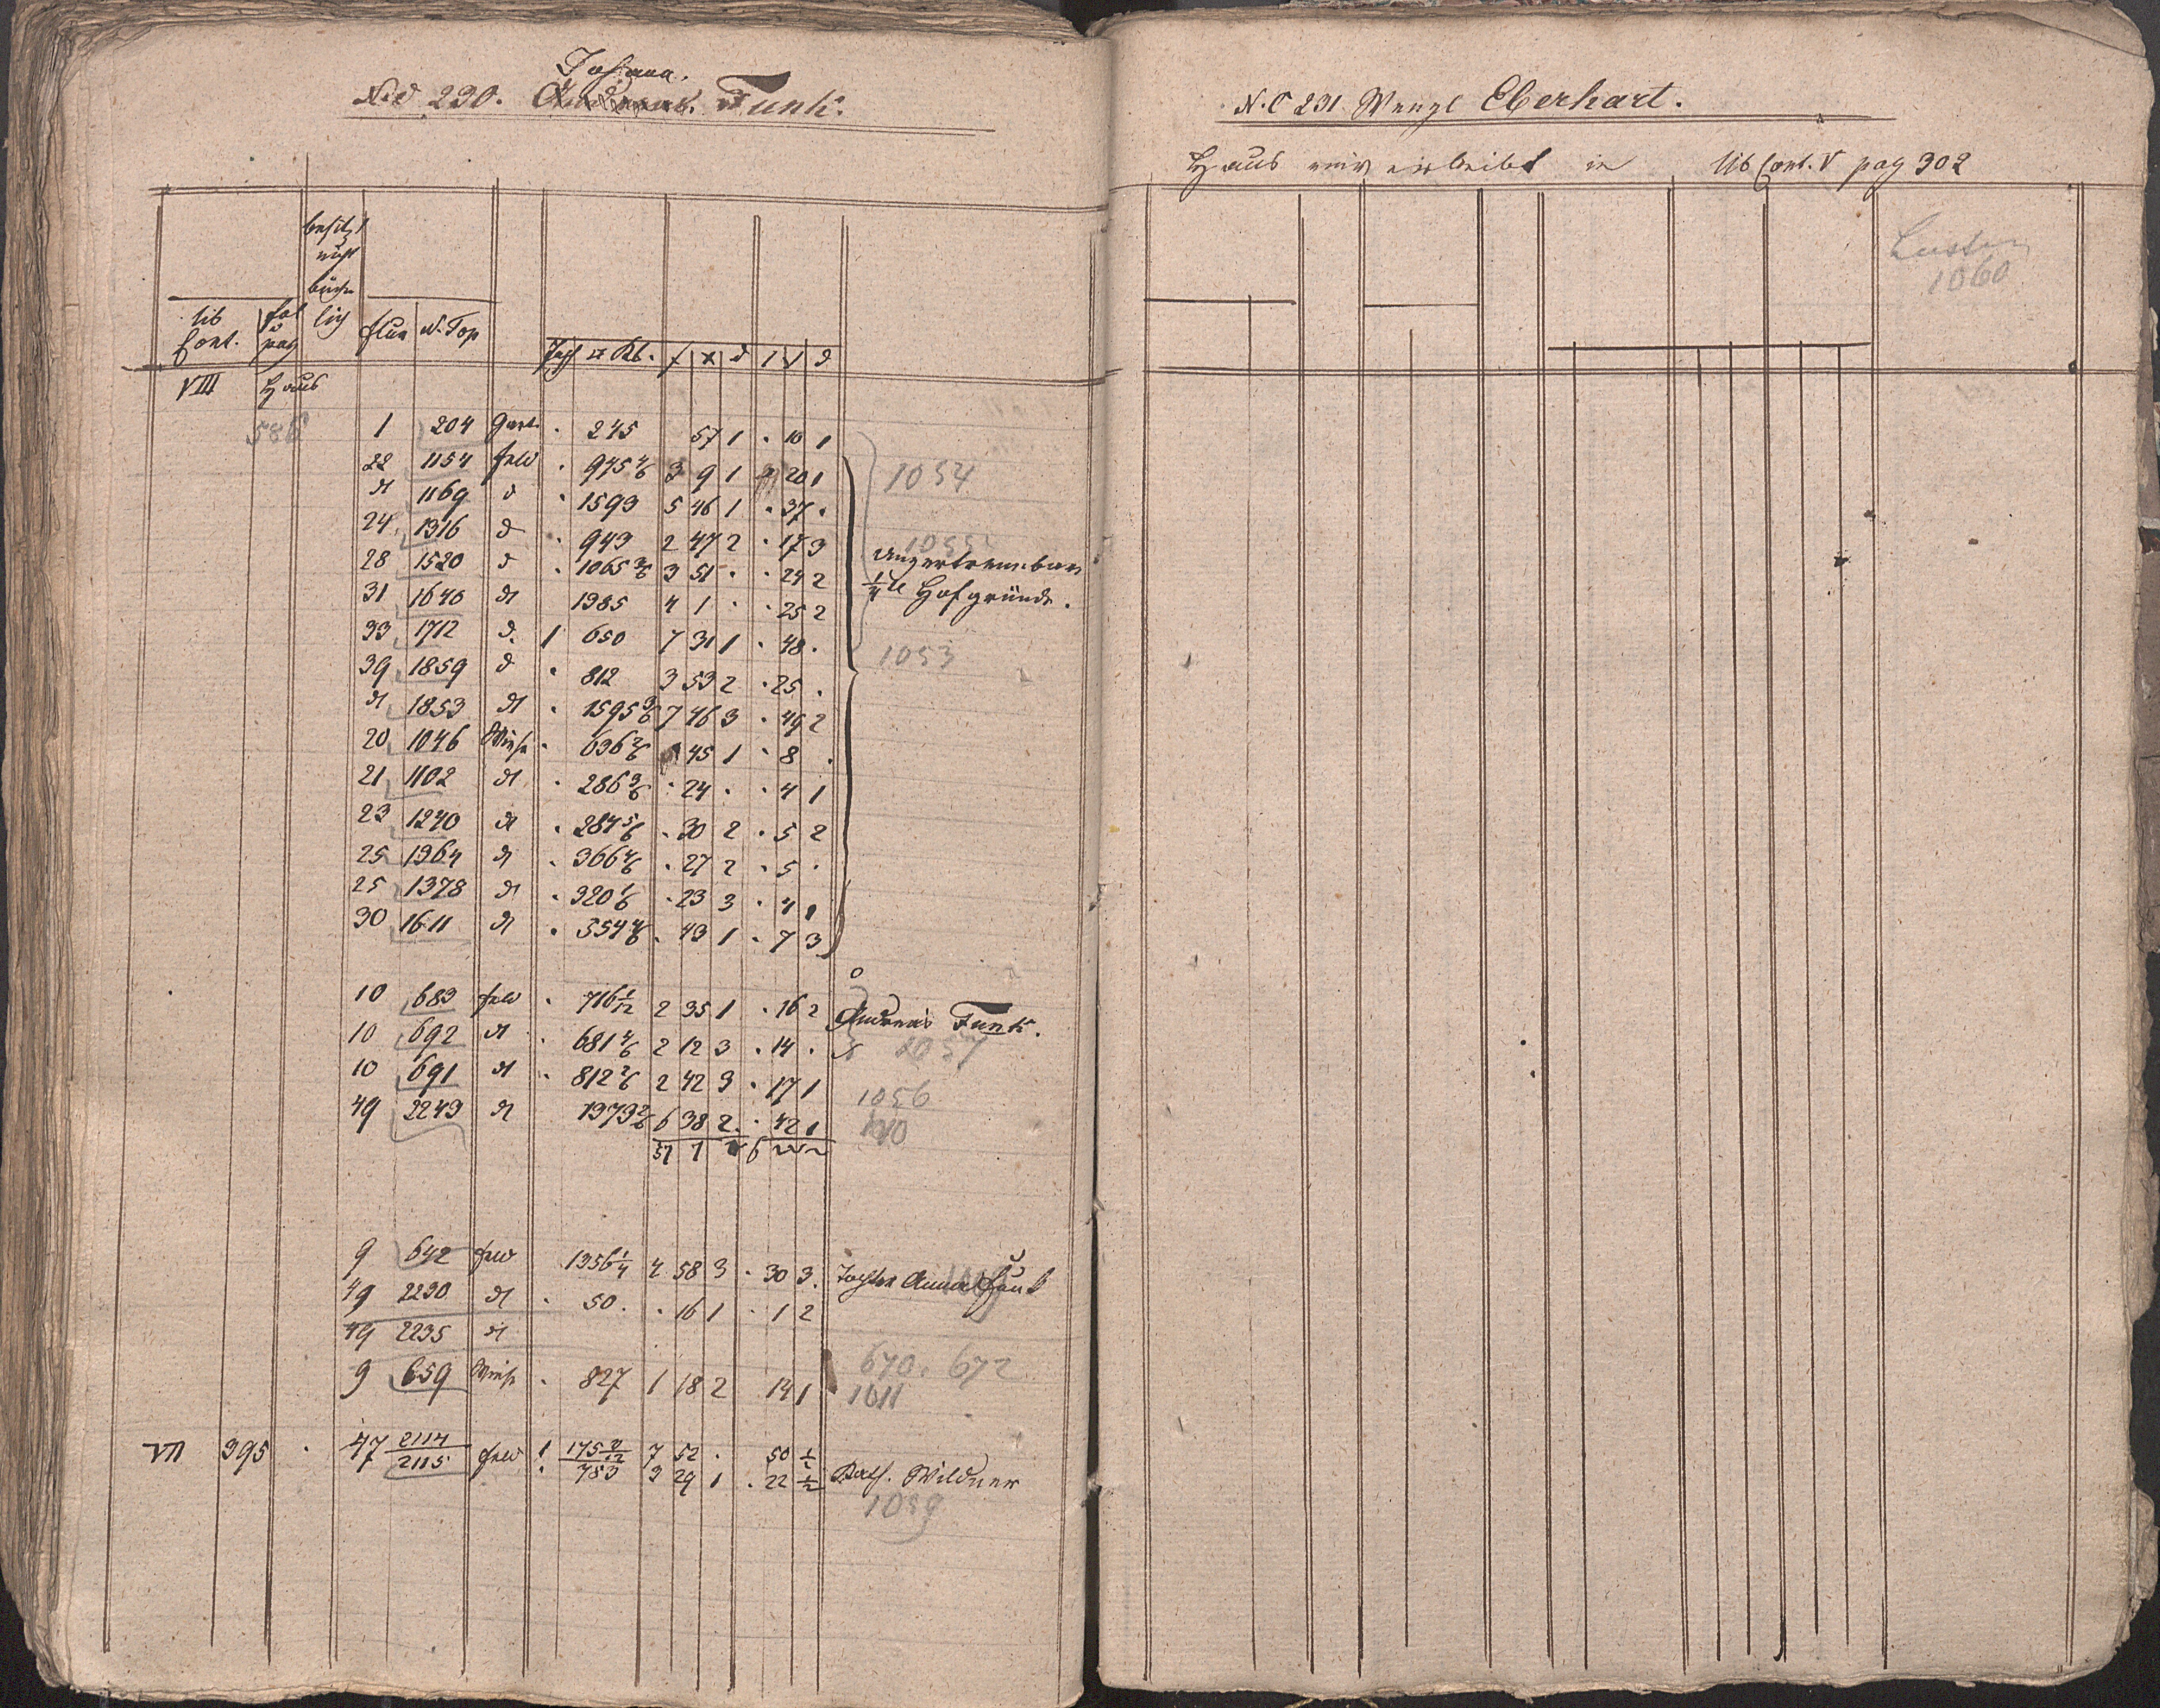 Johann.
N.C 230. Andreas. Funk.
besitzt
nicht
büche
lich
lib
Cont.
fol
pag
flur N. Top
Joch □ Kl. f x d f x d
VIII Haus
586
1 204 Gart. . 245 57 1 . 10 1
22 1154 feld . 975 4/6 3 9 1 20 1
dt 1169 d . 1593 5 46 1 . 37 .
1054
24 1316 d . 943 2 47 2 . 17 3
1055
28 1520 d . 1065 3/6 3 51 . . 24 2
unzertrennbare
31 1646 dt 1385 4 1 . . 25 2
1/4 tl Hofgründe.
33 1712 d. 1 650 7 31 1 . 48 .
39 1859 d . 812 3 53 2 . 25 .
1053
dt 1853 dt . 1595 3/6 7 46 3 . 49 2
20 1046 Wiese . 636 2/6 45 1 . 8 .
21 1102 dt . 286 3/6 . 24 . . 4 1
23 1240 dt . 284 5/6 . 30 2 . 5 2
25 1364 dt . 366 4/6 . 27 2 . 5 .
25 1378 dt . 320 1/6 . 23 3 . 4 1
30 1611 dt . 554 4/6 . 43 1 . 7 3
10 683 feld . 716 1/12 2 35 1 . 16 2 Andreas Funk.
10 692 dt . 681 4/6 2 12 3 . 14 .
1057
10 691 dt . 812 2/6 2 42 3 . 17 1
1056
49 2243 dt 1373 2/6 6 38 2 . 42 1
9 642 feld 1356 1/4 4 58 3 . 30 3. Tochter Anna Funk
49 2230 dt . 50 . . 16 1 . 1 2
49 2235 dt
670. 672
9 659 Wiese . 827 1 18 2 14 1
1011
VII 395 . 47 2114 feld 1 175 2/12 7 52 . 50 1/2
2115 . 783 3 29 1 . 22 1/2 Kath. Wildner
1059
N.C 231 Wenzl Eberhart.
Haus einverleibt in lib Cont. V pag 302
1060